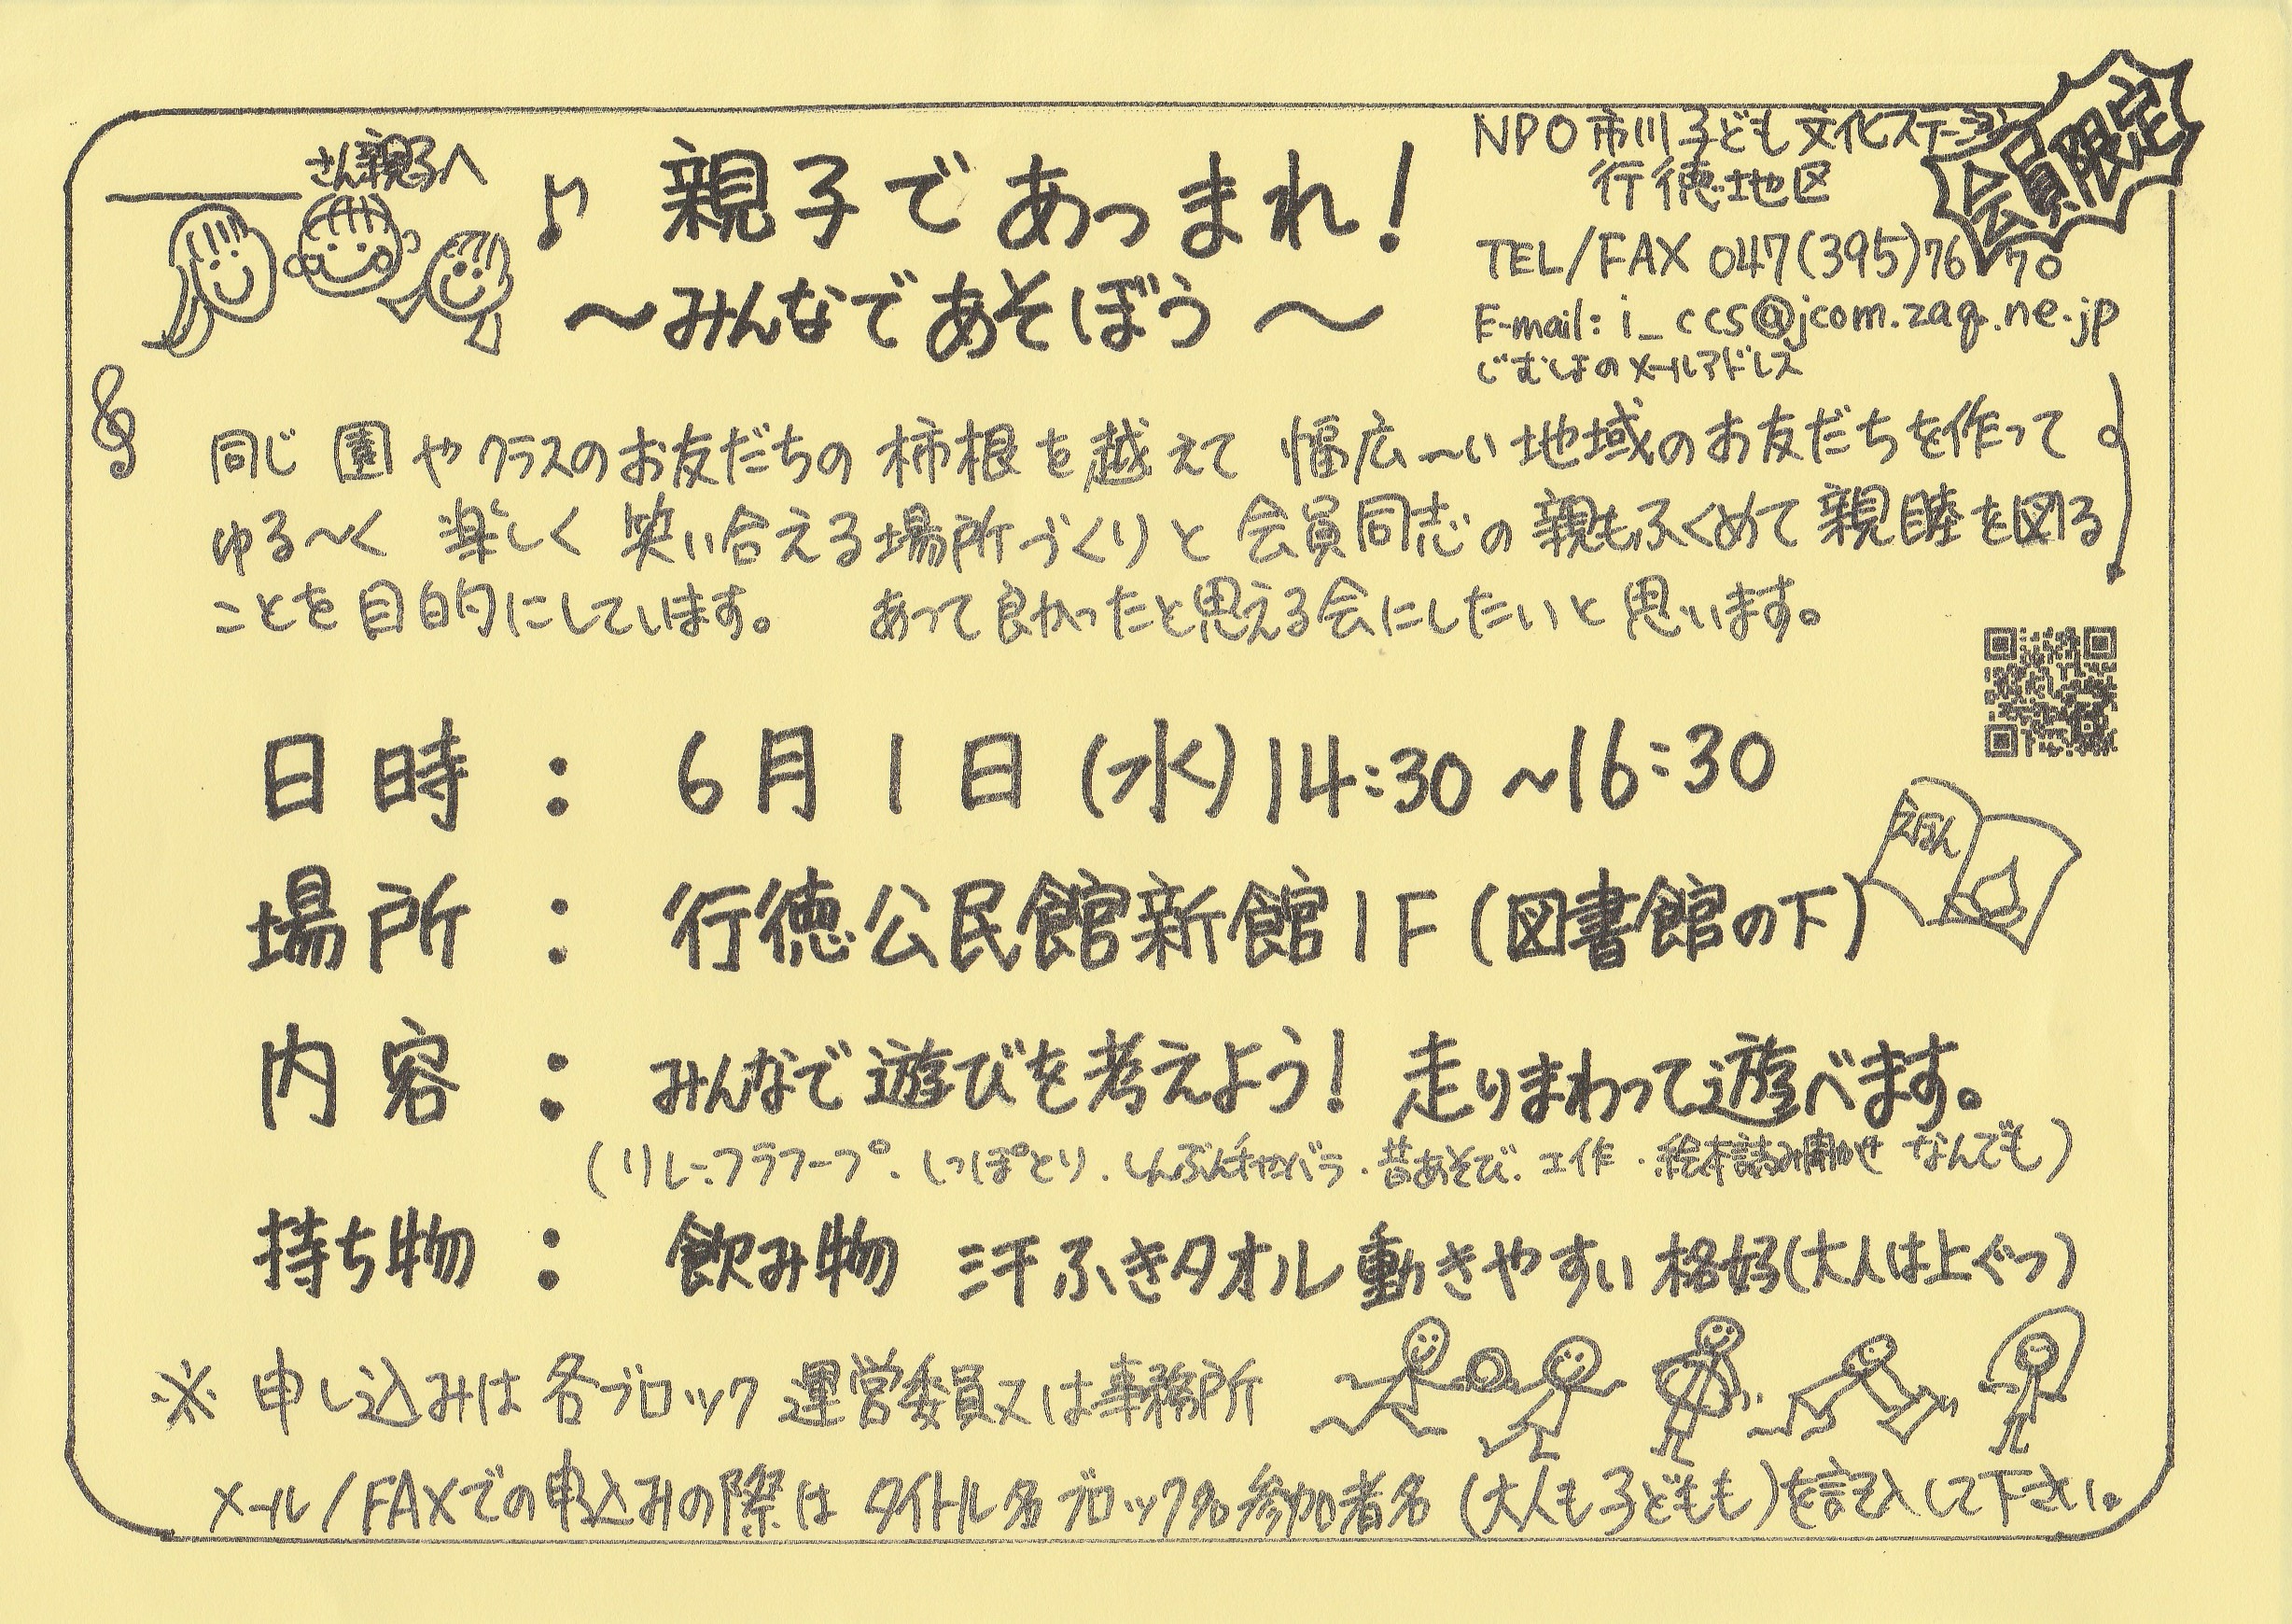 会員限定
さん親子へ
♪ 親子であつまれ!
～みんなであそぼう～
NPO市川子ども文化ステーション
行徳地区
TEL/FAX 047(395)7670
E-mail: i_ccs@jcom.zaq.ne.jp
じむしょのメールアドレス
同じ 園やクラスのお友だちの 柿根を越えて 幅広～い地域のお友だちを作って
ゆる～く 楽しく 笑い合える場所づくりと 会員同志の 親もふくめて親睦を図る
ことを目的にしています。 あって良かったと思える会にしたいと思います。
日時 : 6月1日(水)14:30~16:30
場所 : 行徳公民館新館1F(図書館の下)
えほん
内容 : みんなで遊びを考えよう! 走りまわって遊べます。
(リレー・フラフープ・しっぽとり・しんぶんチャンバラ・昔あそび・工作・絵本読み聞かせ なんでも)
持ち物 : 飲み物 汗ふきタオル 動きやすい格好(大人は上ぐつ)
※ 申し込みは各ブロック運営委員又は事務所
メール/FAXでの申込みの際は タイトル名 ブロック名 参加者名(大人も子どもも)を記入して下さい。